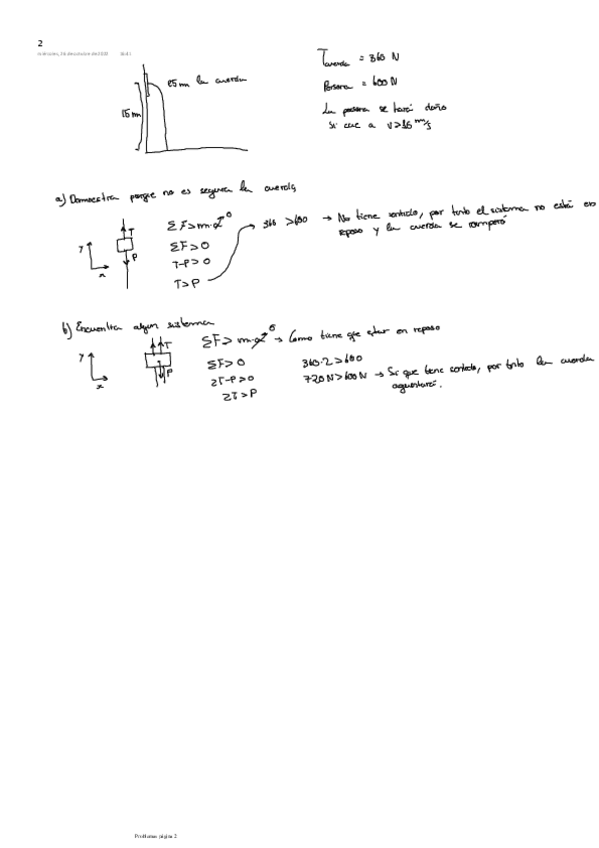 2
miércoles, 26 de octubre de 2022
25 m la cuerda
15 m
Tcuerda = 360 N
Persona = 600 N
La persona se hará daño
si cae a v > 16 m/s
a) Demuestra porque no es segura la cuerda
T
P
y
x
ΣF > m·a 0
ΣF > 0
T - P > 0
T > P
360 > 600 → No tiene sentido, por tanto el sistema no está en
reposo y la cuerda se romperá
b) Encuentra algun sistema
T
P
y
x
ΣF > m·a 0 → Como tiene que estar en reposo
ΣF > 0
2T - P > 0
2T > P
360·2 > 600
720 N > 600 N → Si que tiene sentido, por tanto la cuerda
aguantará.
Problemas página 2